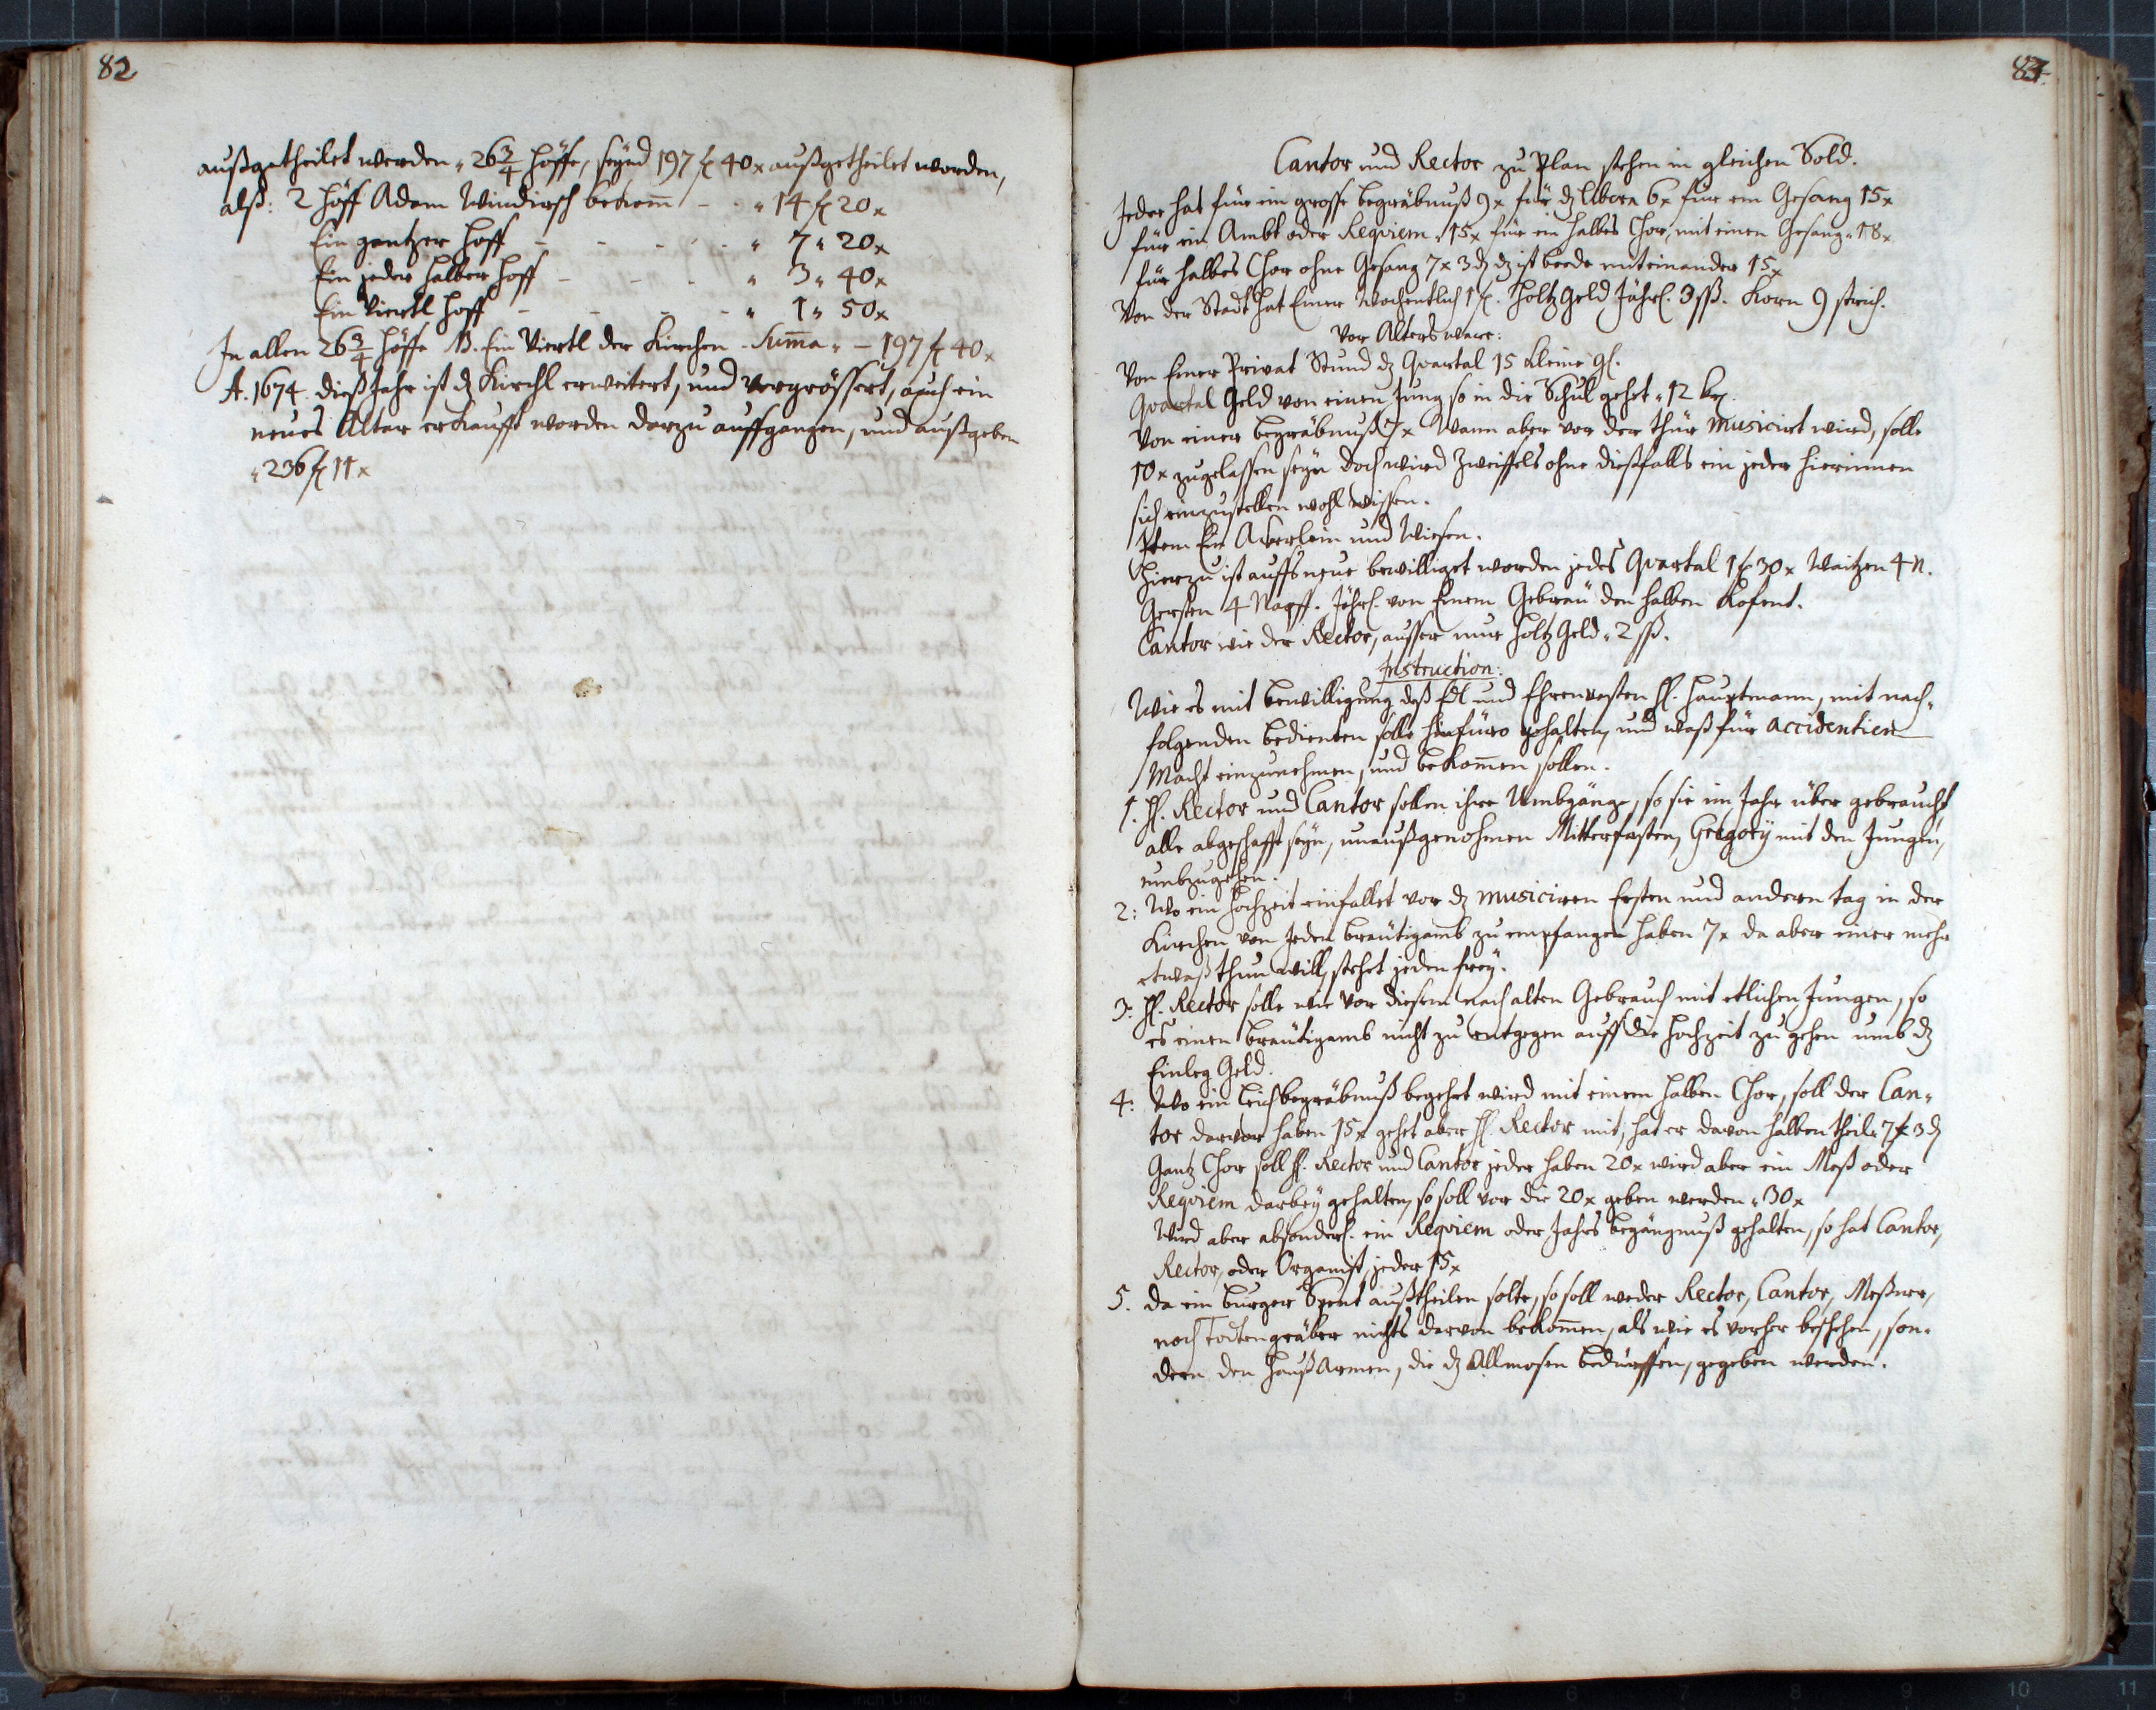 82
außgetheilet werden " 26 3/4 höffe, seynd 197 f 40 x außgetheilet worden,
alß: 2 höff Adam Windirsch bekom̄ - - " 14 f 20 x
Ein gantzer hoff - - - - " 7 " 20 x
Ein jeder halber hoff - - - " 3 " 40 x
Ein Viertl hoff - - - - " 1 " 50 x
In allen 26 3/4 höffe NB. Ein Viertl der Kirchen - Sum̄a " - 197 f 40 x
A. 1674. dieß Jahr ist dz Kirchl erweitert, und vergrössert, auch ein
neues Altar erkaufft worden darzu auffgangen, und außgeben
" 236 f 11 x
83
Cantor und Rector zu Plan stehen in gleichen Sold.
Jeder hat für ein grosse begräbnuß 9 x für dz libera 6 x für ein Gesang 15 x
für ein Ambt oder Reqviem " 15 x für ein halbes Chor, mit einen Gesang " 18 x
für halbes Chor ohne Gesang 7 x 3 d dz ist beede miteinander 15 x
Von der Stadt hat Einer Wochentlich 1 f. holtz Geld Jährl. 3 ß. Korn 9 strich.
Vor Alters ware:
Von Einer Privat Stund dz Qvartal 15 kleine gl.
Qvartal Geld von einen Jung so in die Schul gehet " 12 kr.
Von einer begräbnuß 7 x Wann aber vor der thür musicirt wird, solle
10 x zugelassen seyn doch wird Zweiffels ohne dießfalls ein jeder hierinnen
sich einzustellen wohl wissen.
Item Ein Ackerlein und Wiesen.
Hierzu ist auffs neue bewilliget worden jedes Qvartal 1 f 30 x Waitzen 4 N.
Gersten 4 Napff. Jährl. von Einem Gebräu den halben Kofent.
Cantor wie der Rector, ausser nur holtz Geld " 2 ß.
Instruction:
Wie es mit bewilligung deß Edl und Ehrenvesten H. Hauptmann, mit nach-
folgenden bedienten solle hinfüro gehalten, und waß für accidentien
Macht einzunehmen, und bekom̄en sollen.
1. H. Rector und Cantor sollen ihre Umbgänge, so sie im Jahr über gebraucht,
alle abgeschafft seyn, unaußgenohmen Mitterfasten, Gregory mit den Jungen,
umbzugehen.
2: Wo ein hochzeit einfallet vor dz musiciren Ersten und andern tag in der
Kirchen von Jeden breütigamb zu empfangen haben 7 x da aber einer mehr
etwaß thun will, stehet jeden frey.
3: H. Rector solle wie vor diesem nach alten Gebrauch mit etlichen Jungen, so
es einen breütigamb nicht zu entgegen auff die hochzeit zu gehen umb dz
Einleg Geld.
4: Wo ein leichbegräbnuß begehrt wird mit einem halben Chor, soll der Can-
tor darvor haben 15 x gehet aber H. Rector mit, hat er davon halben theil " 7 x 3 d
Gantz Chor soll H. Rector und Cantor jeder haben 20 x wird aber ein Meß oder
Reqviem darbey gehalten, so soll vor die 20 x geben werden " 30 x
Wird aber absonderl. ein Reqviem oder Jahrs begängnuß gehalten, so hat Cantor,
Rector, oder Organist, jeder 15 x
5. da ein burger Spent außtheilen solte, so soll weder Rector, Cantor, Meßner,
noch Todtengräber nichts darvon bekom̄en, als wie es vorher beschehen, son-
dern den Hauß Armen, die dz Allmosen bedürffen, gegeben werden.